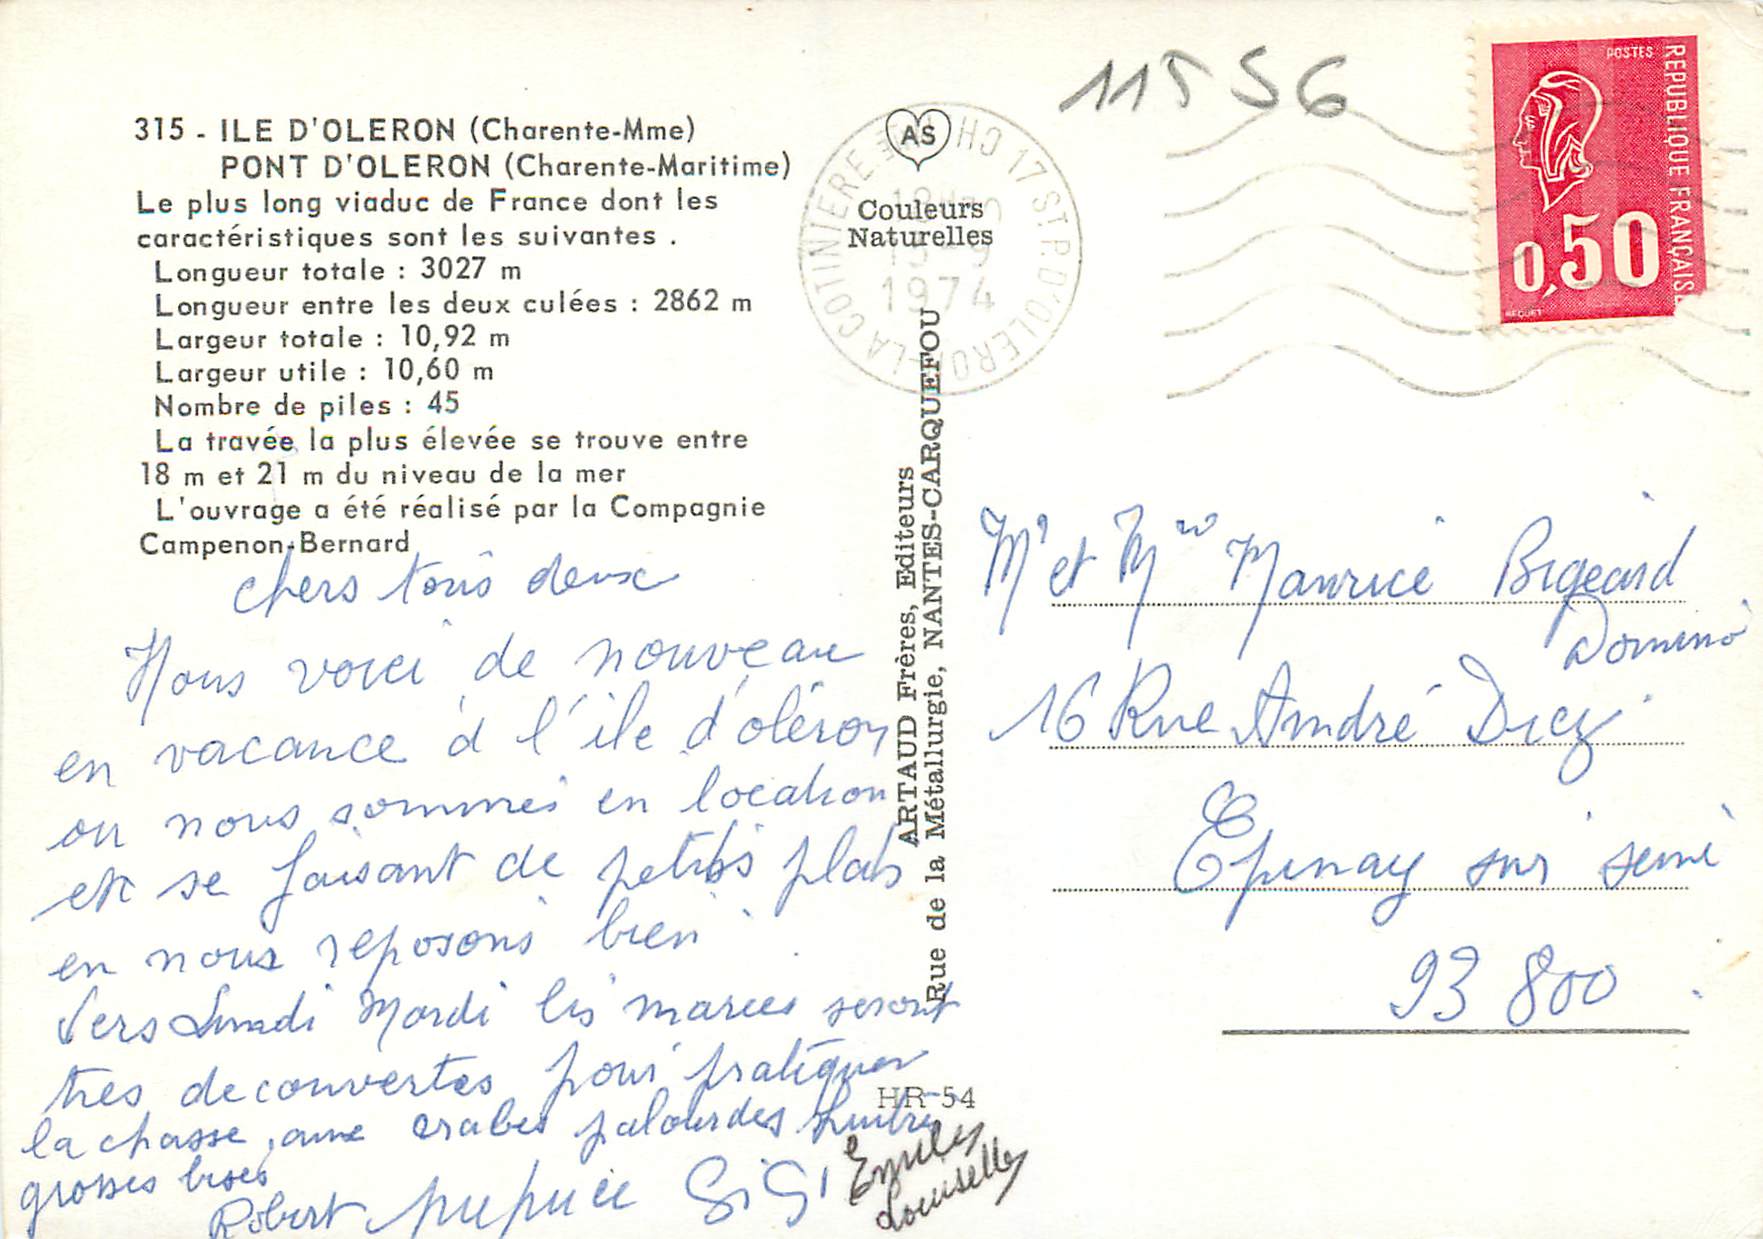 315 - ILE D'OLERON (Charente-Mme)
PONT D'OLERON (Charente-Maritime)
Le plus long viaduc de France dont les
caractéristiques sont les suivantes .
Longueur totale : 3027 m
Longueur entre les deux culées : 2862 m
Largeur totale : 10,92 m
Largeur utile : 10,60 m
Nombre de piles : 45
La travée la plus élevée se trouve entre
18 m et 21 m du niveau de la mer
L'ouvrage a été réalisé par la Compagnie
Campenon-Bernard
chers tous deux
Nous voici de nouveau
en vacance à l'île d'oléron
ou nous sommes en location
etc se faisant de petits plats
en nous reposons bien
Vers Lundi Mardi les marees seront
tres decouvertes pour pratiquer
la chasse, aux crabes palourdes huitres
grosses bises
Robert GiGi
AS
Couleurs
Naturelles
17 ST P. D'OLERON - LA COTINIERE
1974
ARTAUD Frères, Editeurs
Rue de la Métallurgie, NANTES-CARQUEFOU
HR-54
11556
POSTES
REPUBLIQUE FRANÇAISE
0,50
BEQUET
Mr et Mme Maurice Bigeard
16 Rue André
Epinay sur seine
93 800